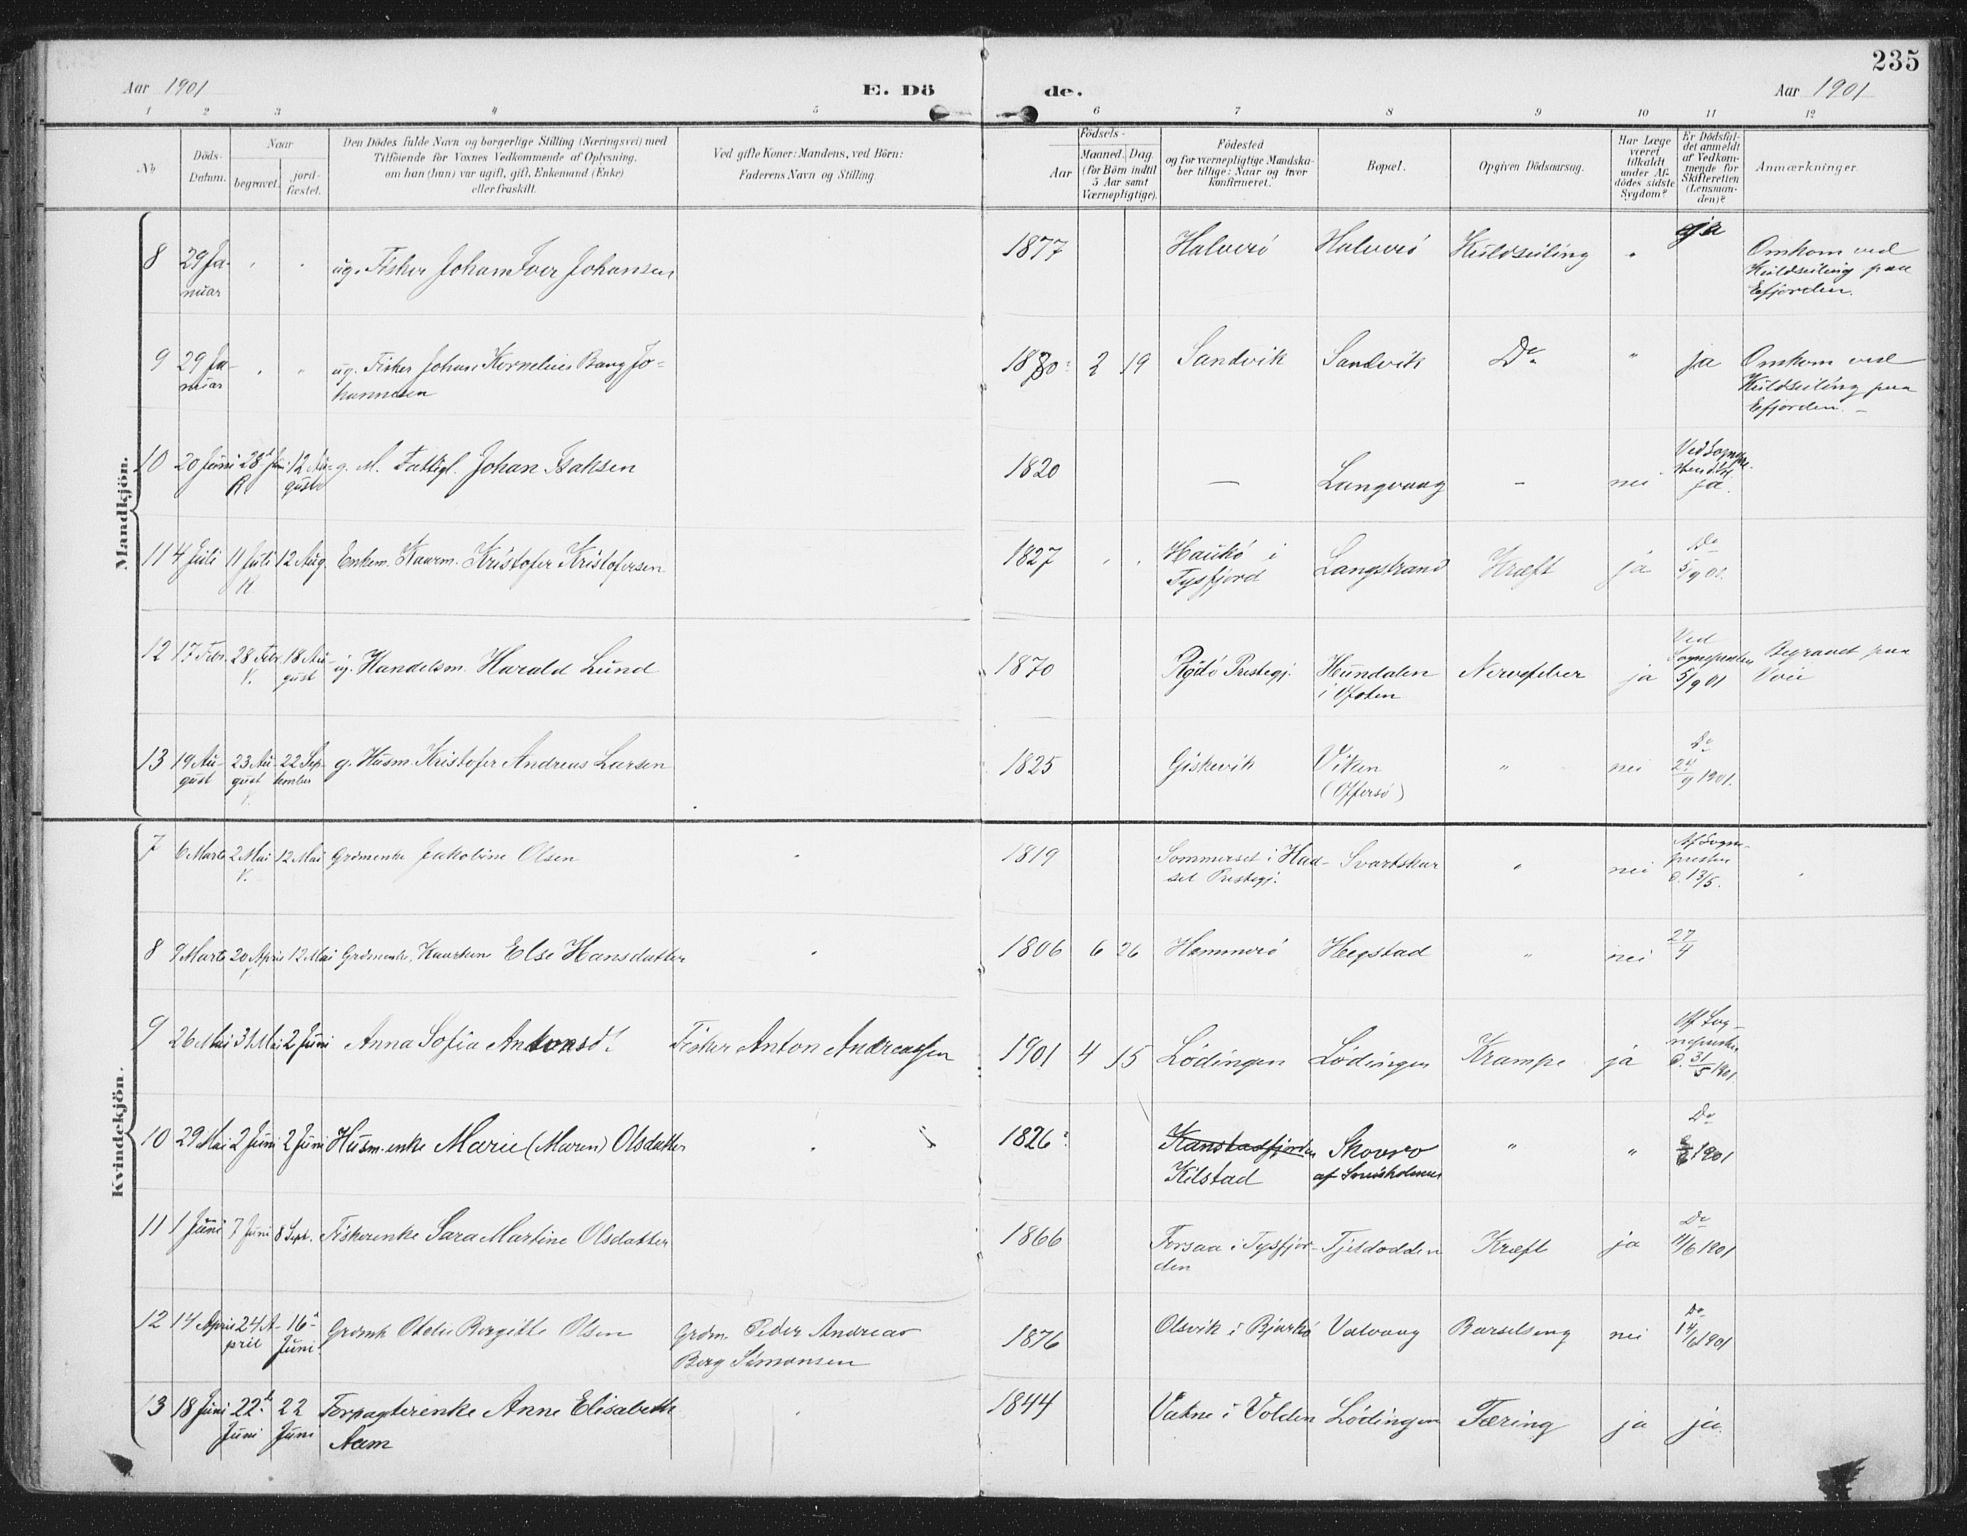 235
Aar 1901 E. Dö de. Aar 1901
1 2 3 4 5 6 7 8 9 10 11 12
No Döds-Datum. Naar begravet. jordfæstet. Den Dödes fulde Navn og borgerlige Stilling (Næringsvei) med Tilföiende for Voxnes Vedkommende af Oplysning, om han (hun) var ugift, gift, Enkemand (Enke) eller fraskilt. Ved gifte Koner: Mandens, ved Börn: Faderens Navn og Stilling. Födsels- Aar Maaned. Dag. (for Börn indtil 5 Aar samt Værnepligtige). Födested og for værnepligtige Mandskaber tillige: Naar og hvor konfirmeret. Bopæl. Opgiven Dödsaarsag. Har Læge været tilkaldt under Afdödes sidste Sygdom? Er Dödsfaldet anmeldt af Vedkommende for Skifteretten (Lensmanden)? Anmærkninger.
Mandkjön.
8 29 Januar " " ug. Fisker Johan Iver Johansen 1877 Halverö Halverö Kuldseiling " ja Omkom ved Kuldseiling paa Efjorden.
9 29 Januar " " ug. Fisker Johan Kornelius Bang Johannesen 1880 2 19 Sandvik Sandvik Do " ja Omkom ved Kuldseiling paa Efjorden. -
10 20 Juni 28 Juni R 12 August g. M. Fattigl. Johan Isaksen 1820 — Langvaag - nei ja.
11 4 Juli 11 Juli R. 12 Aug. Enkem. Kaarm. Kristofer Kristofersen 1827 " " Haukö i Tysfjord Langstrand Kræft ja Do 5/9 01.
12 17 Febr. 28 Febr. V. 18 August ug. Handelsm. Harald Lund 1870 Rödö Prestegj. Hundalen i Ofoten Nervefeber ja Ved Sognepresten 5/9 01 Begravet paa
13 19 August 23 August V. 22 September g. Husm. Kristofer Andreas Larsen 1825 Giskevik Viken (Offersö) " nei Do 24/9 1901.
Kvindekjön.
7 6 Marts 2 Mai V. 12 Mai Grdmenke Jakobine Olsen " 1819 Sommerset i Hadsel Prestegj. Svartskar " nei Af Sognepresten d. 13/5.
8 9 Marts 20 April 12 Mai Grdmenke, Else Hansdatter " 1806 6 26 Hammerö Hegstad " nei 27/4
9 26 Mai 31 Mai 2 Juni Anna Sofia Antonsd. Fisker Anton Andreassen 1901 4 15 Lödingen Lödingen Krampe ja Af Sognepresten d. 31/5 1901.
10 29 Mai 2 Juni 2 Juni Husm.enke Marie (Maren) Olsdatter " " 1826 Kanstadfjorden Kilstad Skovro " " Do 1901
11 1 Juni 7 Juni 8 Sept. Fiskerenke Sara Martine Olsdatter 1866 Forsaa i Tysfjorden Tjeldodden Kræft ja Do 11/6 1901
12 14 April 24 April 16 Juni Grdmk Birgitte Olsen Grdm. Peder Andreas Berg Simonsen 1876 Olsvik i Bjarkö Valvaag Barselseng nei Do 14/6 1901
13 18 Juni 22 Juni 22 Juni Forpagterenke Anne Elisabeth Aam " 1844 Vatne i Volden Lödingen Tæring ja ja.